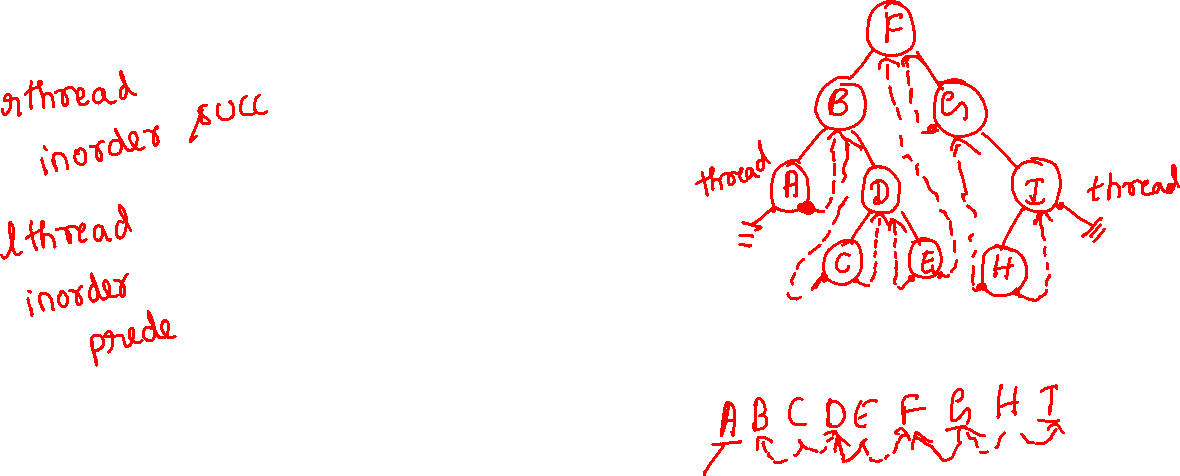 rthread
inorder succ
lthread
inorder
prede
F
B G
thread A D I thread
C E H
A B C D E F G H I